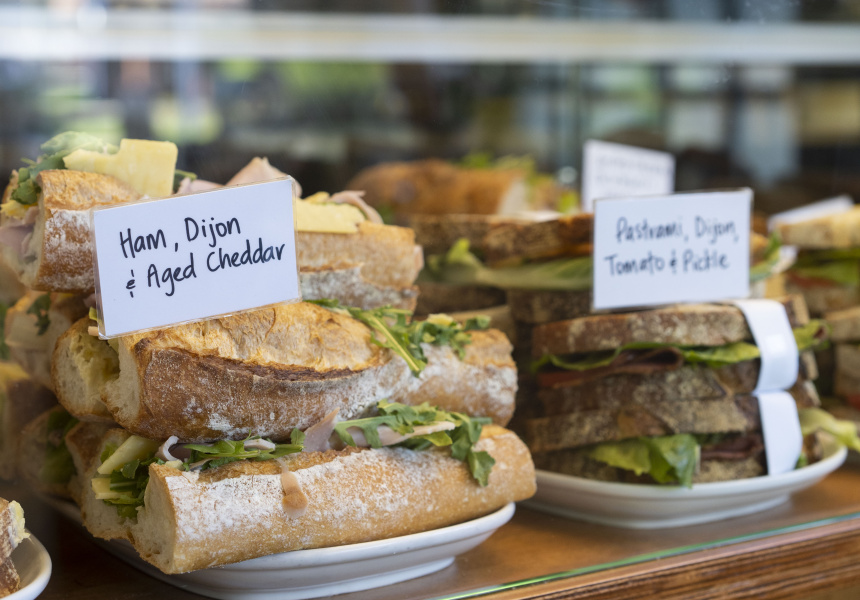 Ham, Dijon
& Aged Cheddar
Pastrami, Dijon,
Tomato & Pickle